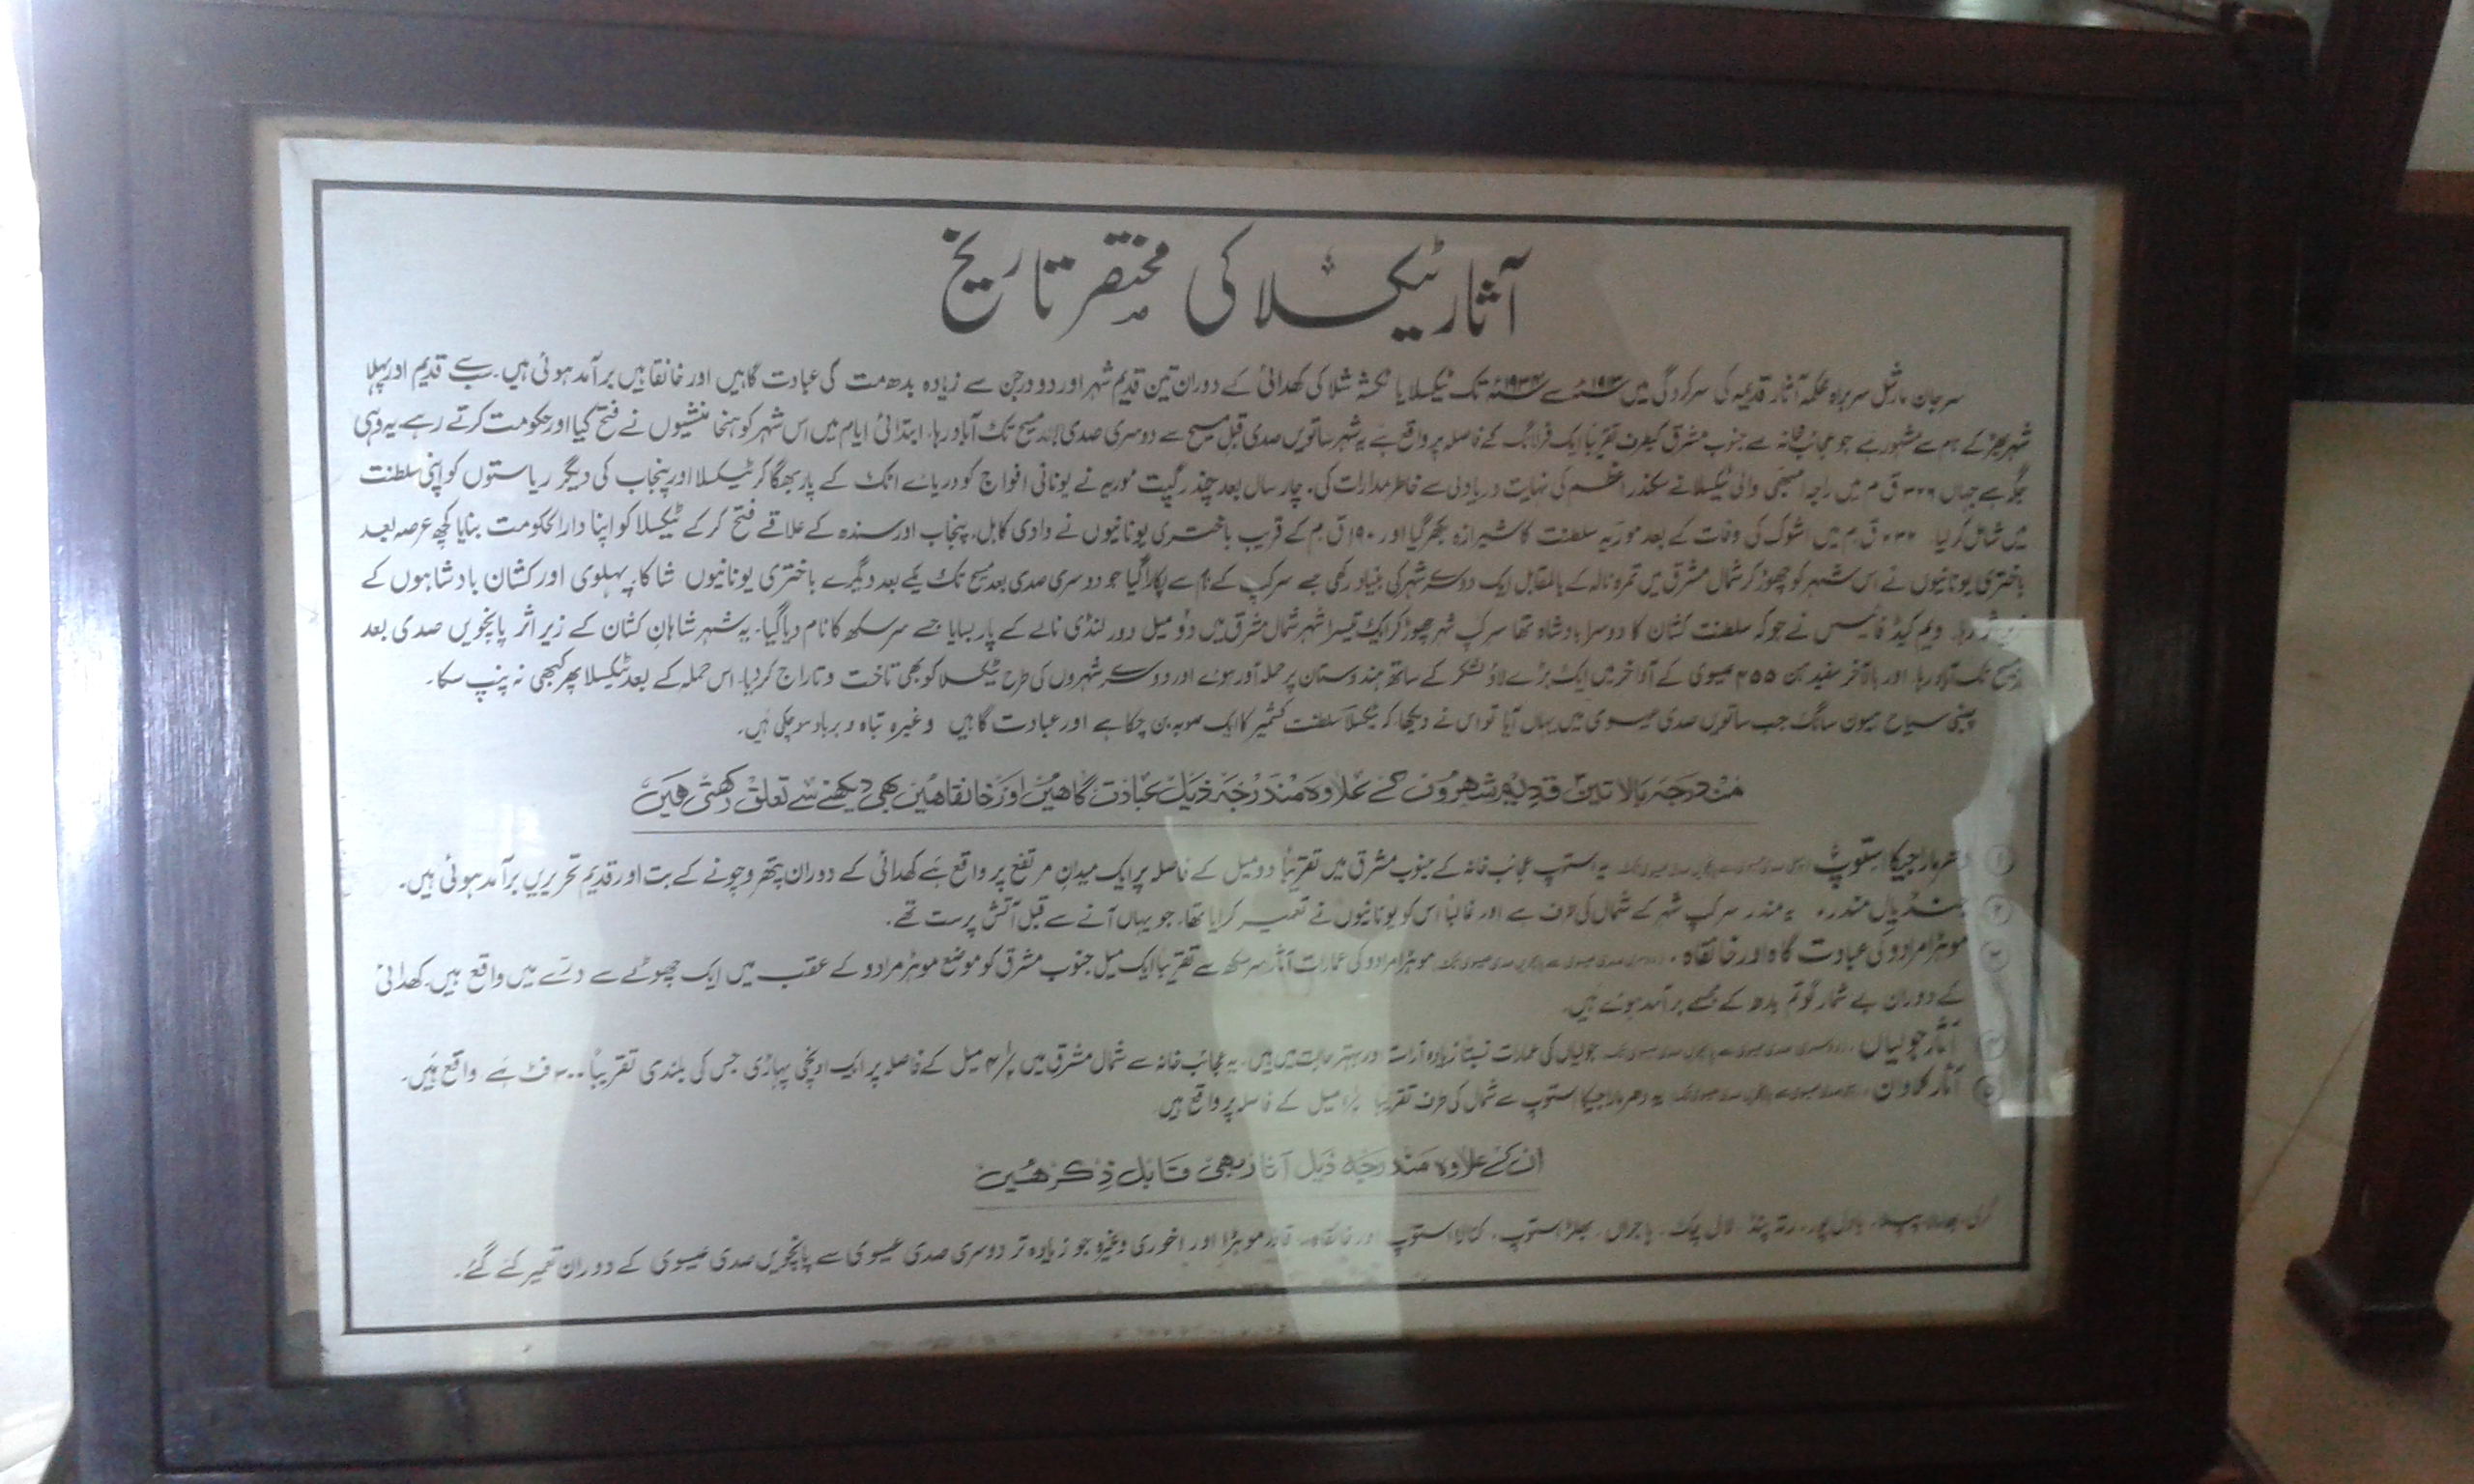 آثار ٹیکسلا کی مختصر تاریخ
سرجان مارشل سربراہ محکمہ آثار قدیمہ کی سرکردگی میں ۱۹۱۳ء سے ۱۹۳۴ء تک ٹیکسلا یا تکشہ شلا کی کھدائی کے دوران تین قدیم شہر اور دو درجن سے زیادہ بدھ مت کی عبادت گاہیں اور خانقاہیں برآمد ہوئی ہیں۔ سب سے قدیم اور پہلا
شہر بھڑ کے نام سے مشہور ہے جو عجائب خانہ سے جنوب مشرق کیطرف تقریباً ایک فرلانگ کے فاصلہ پر واقع ہے یہ شہر ساتویں صدی قبل مسیح سے دوسری صدی بعد مسیح تک آباد رہا۔ ابتدائی ایام میں اس شہر کو ہخامنشیوں نے فتح کیا اور حکومت کرتے رہے۔ یہ وہی
جگہ ہے جہاں ۳۲۶ ق م میں راجہ امبھی والی ٹیکسلا نے سکندر اعظم کی نہایت دریادلی سے خاطر مدارات کی۔ چار سال بعد چندر گپت موریہ نے یونانی افواج کو دریائے اٹک کے پار بھگا کر ٹیکسلا اور پنجاب کی دیگر ریاستوں کو اپنی سلطنت
میں شامل کر لیا۔ ۲۳۲ ق م میں اشوک کی وفات کے بعد موریہ سلطنت کا شیرازہ بکھر گیا اور ۱۹۰ ق م کے قریب باختری یونانیوں نے وادی کابل، پنجاب اور سندھ کے علاقے فتح کر کے ٹیکسلا کو اپنا دارالحکومت بنایا کچھ عرصہ بعد
باختری یونانیوں نے اس شہر کو چھوڑ کر شمال مشرق میں تمرہ نالہ کے بالمقابل ایک دوسرے شہر کی بنیاد رکھی جسے سرکپ کے نام سے پکارا گیا جو دوسری صدی بعد مسیح تک یکے بعد دیگرے باختری یونانیوں شاکا، پہلوی اور کشان بادشاہوں کے
زیر اثر رہا۔ ویم کیڈ فائسس نے جو کہ سلطنت کشان کا دوسرا بادشاہ تھا سرکپ شہر چھوڑ کر ایک تیسرا شہر شمال مشرق میں دو میل دور لنڈی نالے کے پار بسایا جسے سرسکھ کا نام دیا گیا۔ یہ شہر شاہان کشان کے زیر اثر پانچویں صدی بعد
مسیح تک آباد رہا۔ اور بالآخر سفید ہن ۴۵۵ عیسوی کے آواخر میں ایک بڑے لاؤ لشکر کے ساتھ ہندوستان پر حملہ آور ہوئے اور دوسرے شہروں کی طرح ٹیکسلا کو بھی تاخت و تاراج کر دیا۔ اس حملہ کے بعد ٹیکسلا پھر کبھی نہ پنپ سکا۔
چینی سیاح ہیون سانگ جب ساتویں صدی عیسوی میں یہاں آیا تو اس نے دیکھا کہ ٹیکسلا سلطنت کشمیر کا ایک صوبہ بن چکا ہے اور عبادت گاہیں وغیرہ تباہ و برباد ہو چکی ہیں۔
مندرجہ بالا تین قدیم شہروں کے علاوہ مندرجہ ذیل عبادت گاہیں اور خانقاہیں بھی دیکھنے سے تعلق رکھتی ہیں
① دھرماراجیکا استوپ یہ استوپ عجائب خانہ کے جنوب مشرق میں تقریباً دو میل کے فاصلہ پر ایک میدان مرتفع پر واقع ہے کھدائی کے دوران پتھر و چونے کے بت اور قدیم تحریریں برآمد ہوئی ہیں۔
② جنڈیال مندر۔ یہ مندر سرکپ شہر کے شمال کی طرف ہے اور غالباً اس کو یونانیوں نے تعمیر کرایا تھا۔ جو یہاں آنے سے قبل آتش پرست تھے۔
③ موہڑا مرادو کی عبادت گاہ اور خانقاہ۔ موہڑا مرادو کی عمارات آثار سرسکھ سے تقریباً ایک میل جنوب مشرق کو موضع موہڑا مرادو کے عقب میں ایک چھوٹے سے درّے میں واقع ہیں۔ کھدائی
کے دوران بے شمار گوتم بدھ کے مجسمے برآمد ہوئے ہیں۔
④ آثار جولیاں۔ جولیاں کی عمارت نسبتاً زیادہ آراستہ اور بہتر حالت میں ہیں۔ یہ عجائب خانہ سے شمال مشرق میں میل کے فاصلہ پر ایک اونچی پہاڑی جس کی بلندی تقریباً ۳۰۰ فٹ ہے واقع ہیں۔
⑤ آثار کلاوان۔ یہ دھرماراجیکا استوپ سے شمال کی طرف تقریباً میل کے فاصلہ پر واقع ہیں
ان کے علاوہ مندرجہ ذیل آثار بھی قابل ذکر ہیں
گری، بادل پور، رتہ پنڈ، لال چک، باجراں، بھلڑ استوپ، کنالا استوپ اور خانقاہ، موہڑا اور اخوری وغیرہ جو زیادہ تر دوسری صدی عیسوی سے پانچویں صدی عیسوی کے دوران تعمیر کئے گئے۔